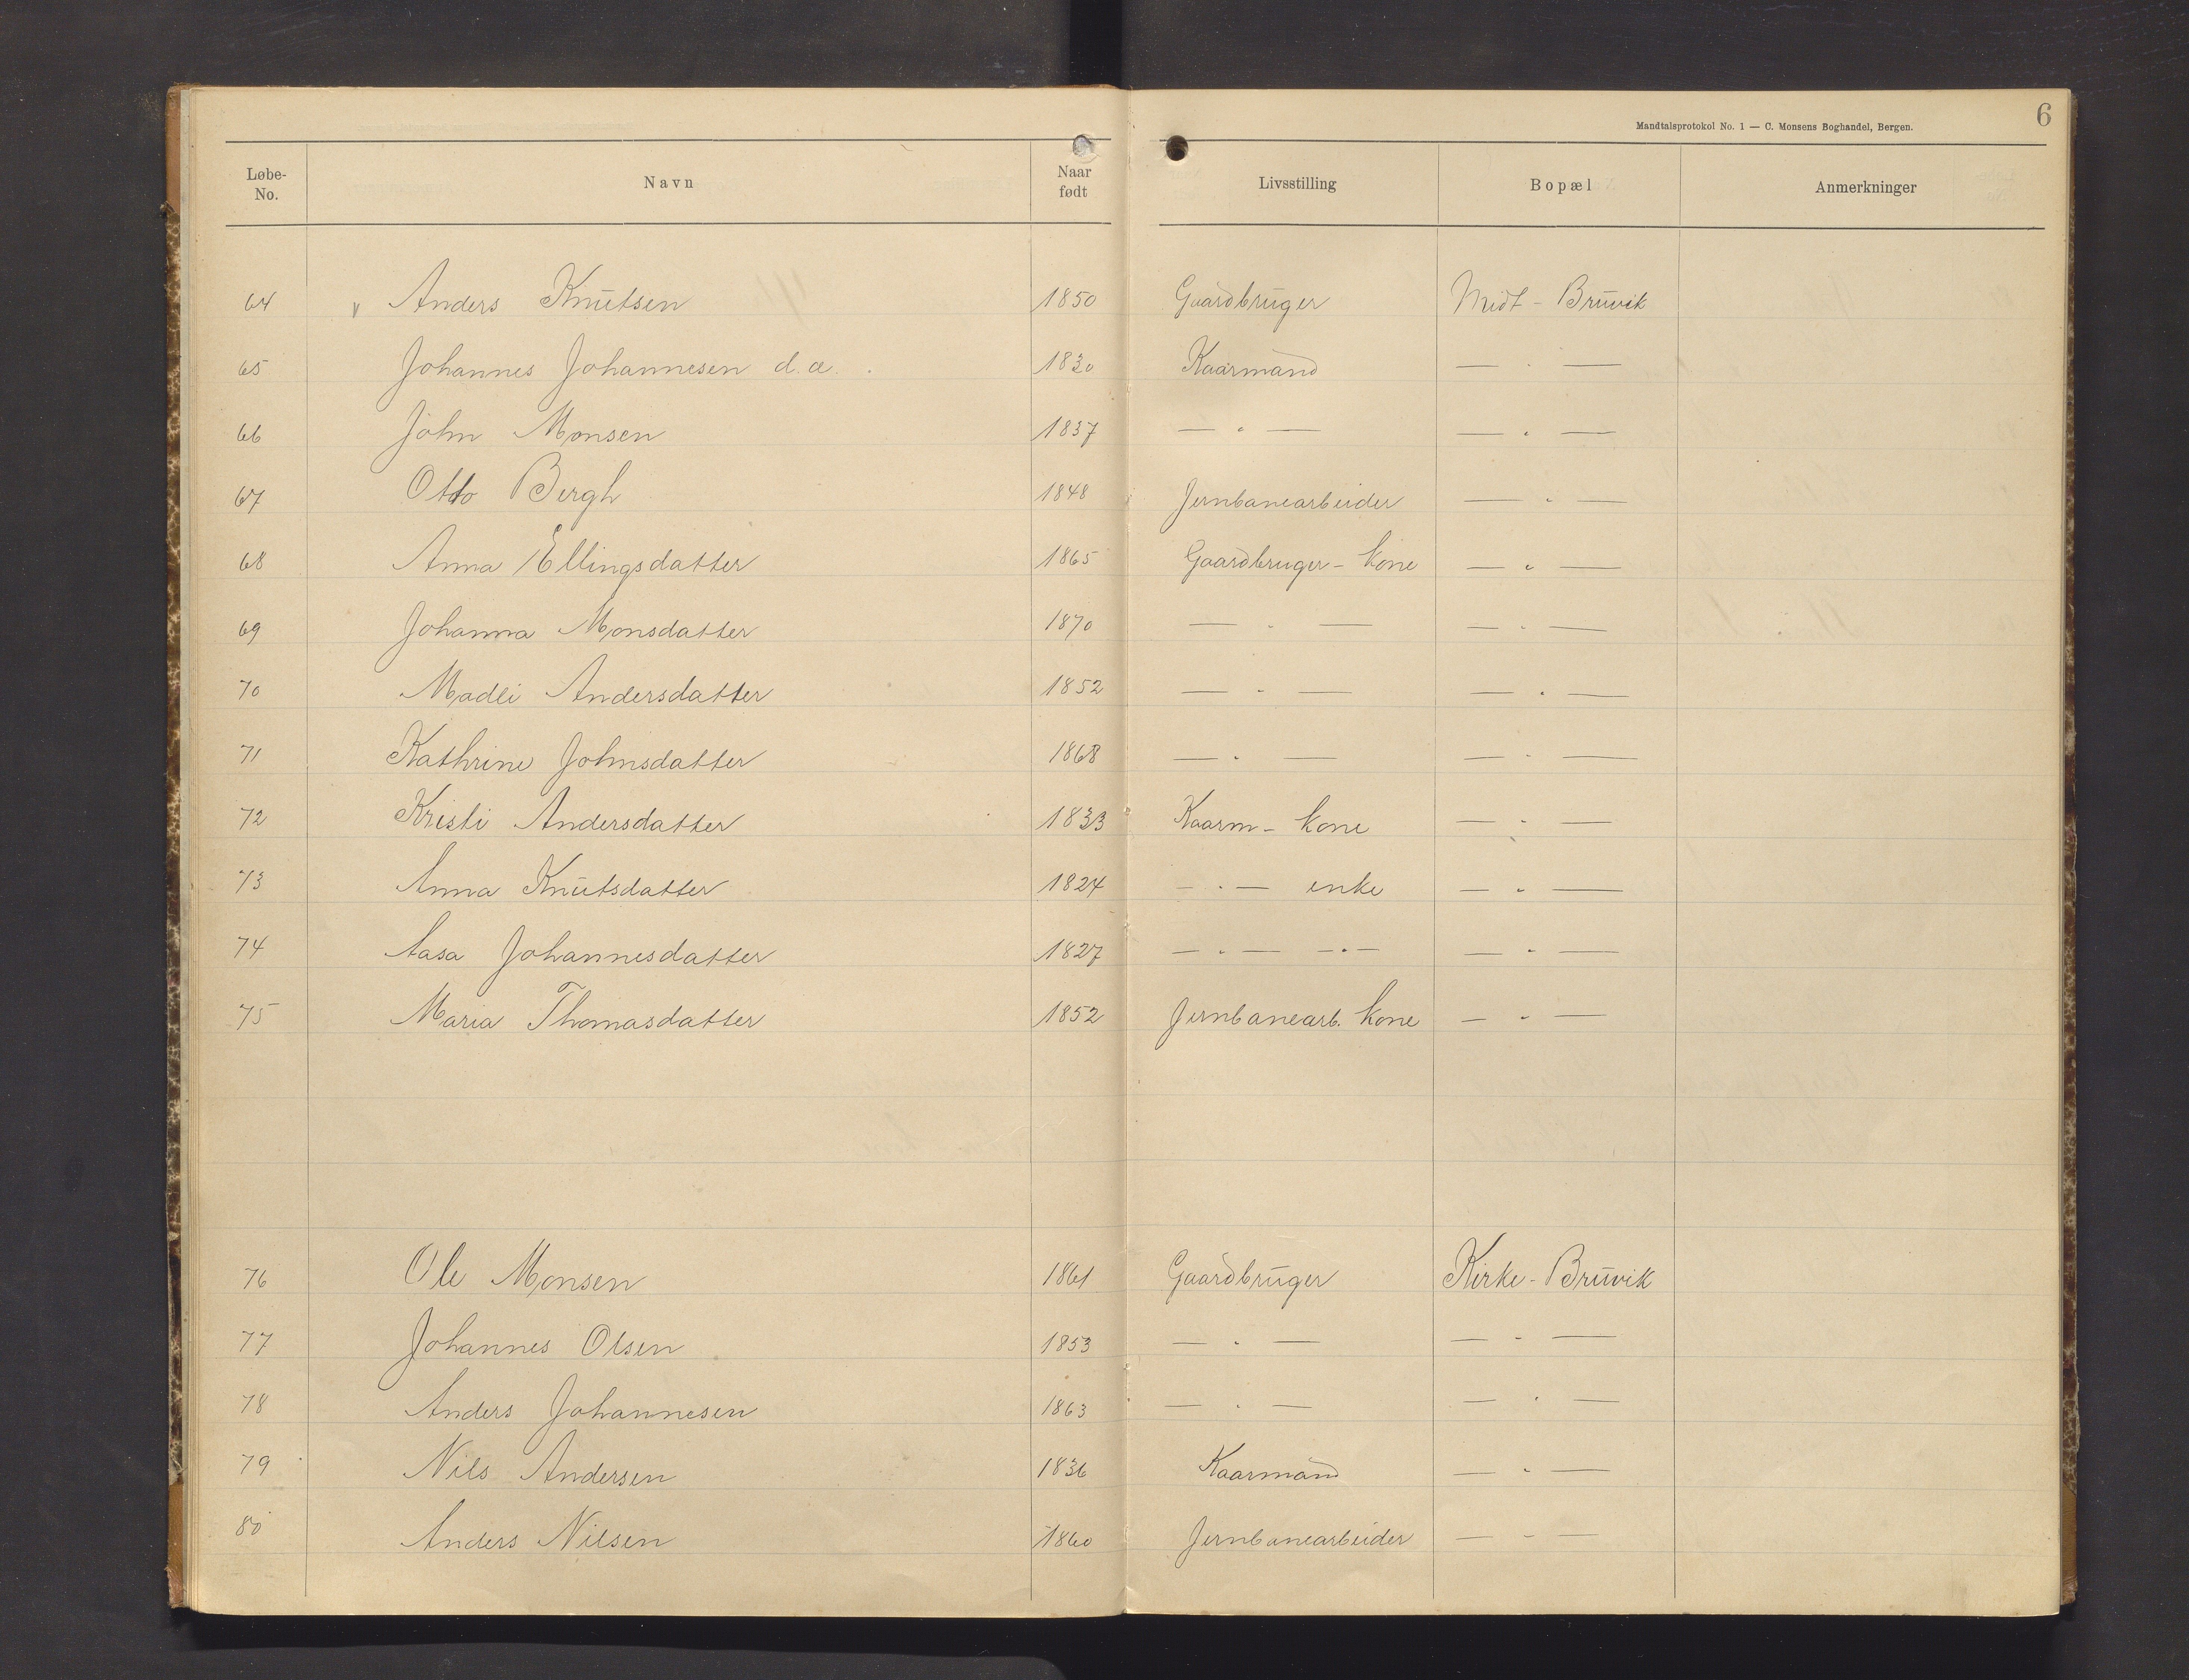 Mandtalsprotokol No. 1 — C. Monsens Boghandel, Bergen. 6
Løbe-No. Navn Naar født Livsstilling Bopæl Anmerkninger
64 v Anders Knutsen 1850 Gaardbruger Midt-Bruvik
65 Johannes Johannesen d.æ. 1830 Kaarmand — " —
66 John Monsen 1837 — " — — " —
67 Otto Bergh 1848 Jernbanearbeider — " —
68 Anna Ellingsdatter 1865 Gaardbruger-kone — " —
69 Johanna Monsdatter 1870 — " — — " —
70 Madli Andersdatter 1852 — " — — " —
71 Kathrine Johnsdatter 1868 — " — — " —
72 Kristi Andersdatter 1833 Kaarm-kone — " —
73 Anna Knutsdatter 1824 — " — enke — " —
74 Aasa Johannesdatter 1827 — " — — " — — " —
75 Maria Thomasdatter 1852 Jernbanearb. kone — " —
76 Ole Monsen 1861 Gaardbruger Kirke-Bruvik
77 Johannes Olsen 1853 — " — — " —
78 Anders Johannesen 1863 — " — — " —
79 Nils Andersen 1836 Kaarmand — " —
80 Anders Nilsen 1860 Jernbanearbeider — " —